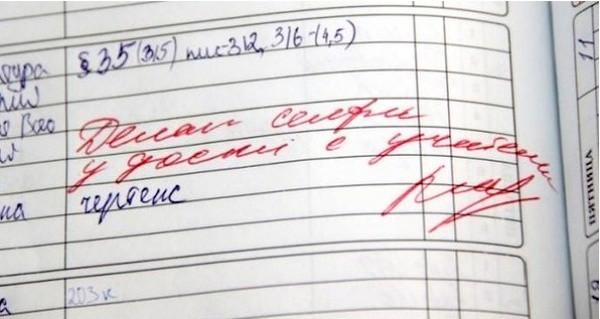 § 35 (3,5) пис-312, 316-(4,5)
Делал селфи
у доски с учителем
чертеж
203 к
ПЯТНИЦА
11